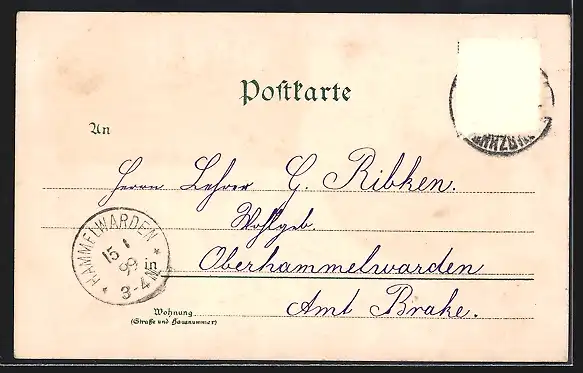 Postkarte
An
Herrn Lehrer G. Ribken.
Wohlgeb.
in Oberhammelwarden
Amt Brake.
Wohnung
(Straße und Hausnummer)
* HAMMELWARDEN *
15 1
99
3-4N